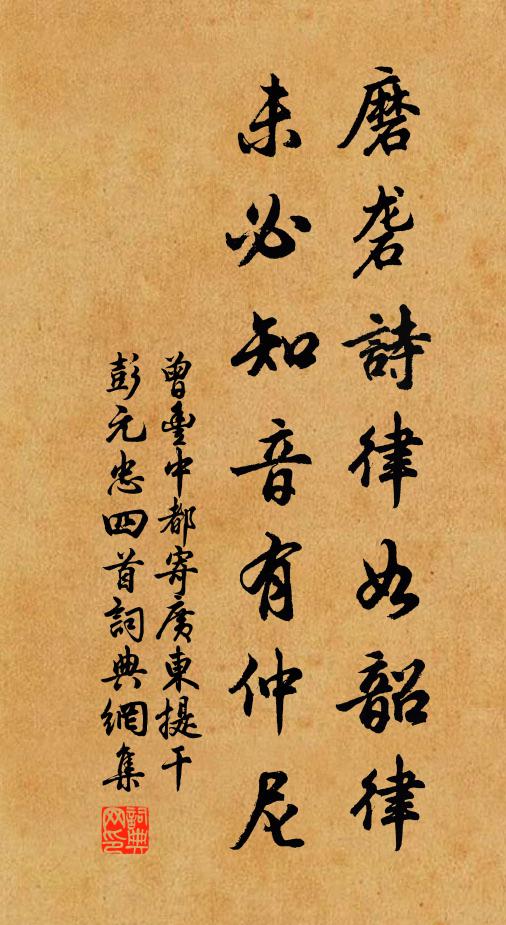 磨砻詩律如韶律
未必知音有仲尼
曾豐中都寄廣東提干
彭元忠四首詞典網集
詞典
网印